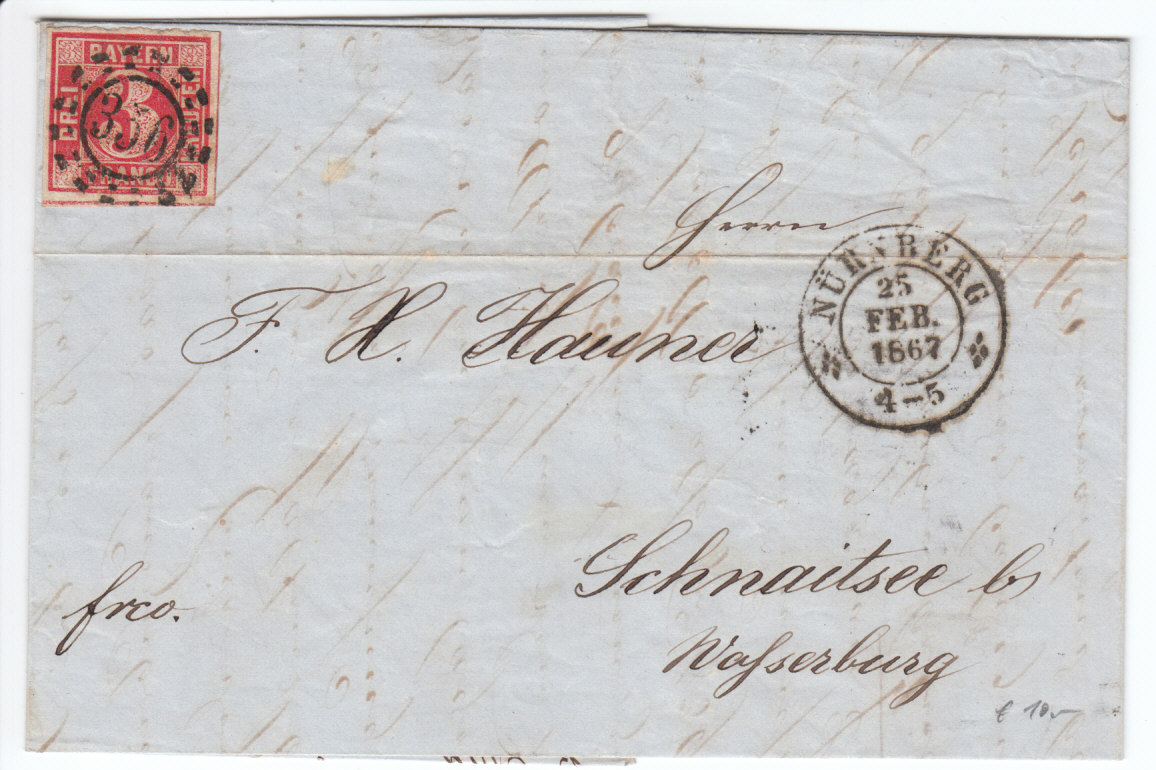 BAYERN
DREI
3
KREUZER
FRANCO
356
Herrn
F. X. Hauner
NÜRNBERG
25
FEB.
1867
4-5
Schnaitsee b/
Waſserburg
frco.
€ 10,-